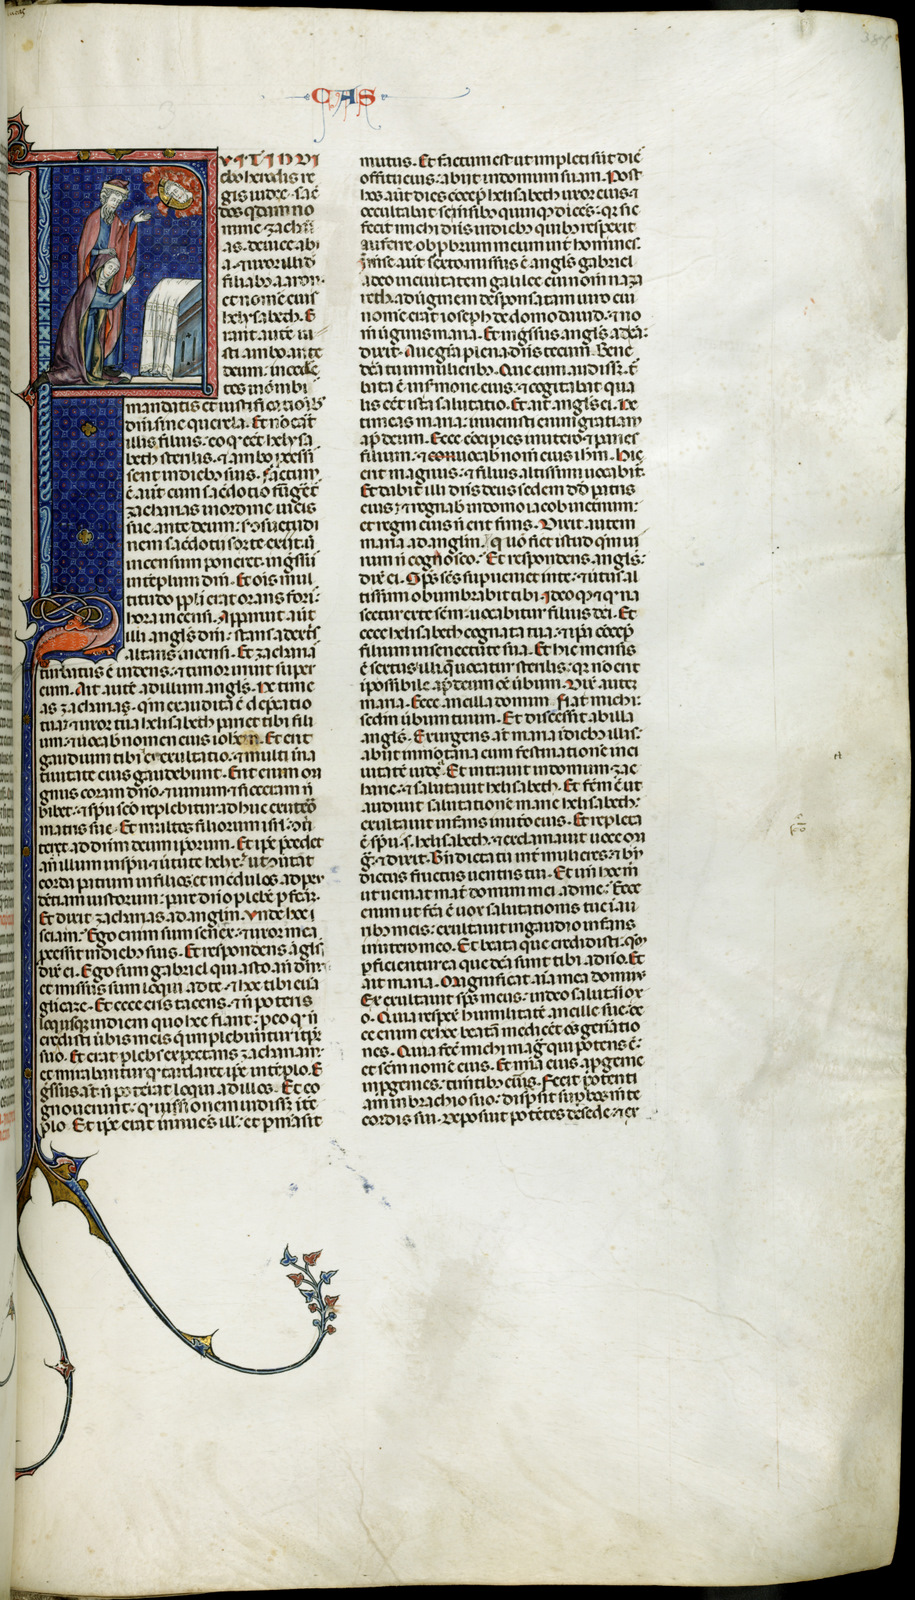 CAS
VIT IN DI
ebꝰ herodis re
gis iudee. sac̄
dos qdam no
mine zacha
as. de uice abi
a. ⁊ uxor illi d
filiab aaron.
et nomē eius
helysabeth. E
rant autē iu
sti ambo ante
deum. incedē
tes in omībꝫ
mandatis et iustificatiōibꝫ
dn̄i sine querela. Et nō erat
illis filius. eo q̄ eēt helysa
beth sterilis. ⁊ ambo ꝓcessi
sent in diebꝫ suis. Factum
ē aūt cum sac̄dotio fūgēt̄
zacharias in ordine uicis
sue. ante deum. scd̄m ꝯsuetudi
nem sac̄dotii sorte exiit. ut
incensum poneret. ingssus
in templum dn̄i. Et ōis mul
titudo ppl̄i erat orans fori
hora incensi. Apparuit aūt
illi angls dn̄i. stans a dextˢ
altaris incensi. Et zacharia
turbatus ē uidens. ⁊ timor irruit super
eum. Ait autē ad illum angls. Ne time
as zacharias. qm̄ exaudita ē dep̄catio
tua. ⁊ uxor tua helisabeth pariet tibi fili
um. ⁊ uocabˢ nomen eius ioh̄em. Et erit
gaudium tibi et exultatio. ⁊ multi in na
tiuitate eius gaudebunt. Erit enim ma
gnus coram dn̄o. ⁊ uinum ⁊ siceram n̄
bibet. ⁊ sp̄u sc̄o replebitur adhuc ex utero
matris sue. Et multos filiorum isrl̄. ꝯū
tet ad dn̄m deum ipsorum. Et ip̄e p̄cedet
an̄ illum in sp̄u ⁊ uirtute helye. ut ꝯuertat
corda patrum in filios. et incredulos ad pru
dētiam iustorum. parare dn̄o plebē pfc̄am.
Et dixit zacharias ad anglm̄. Unde hoc
sciam. Ego enim sum senex. ⁊ uxor mea
ꝓcessit in diebꝫ suis. Et respondens angls
dix̄ ei. Ego sum gabriel qui asto an̄ dm̄
et missus sum loqui ad te. ⁊ hec tibi eua
gelizare. Et ecce eris tacens. ⁊ n̄ poteris
loqui usqꝫ in diem quo hec fiant. ꝓ eo q̄ n̄
credisti ūbis meis q̄ implebuntur i tp̄r
suo. Et erat plebs expectans zachariam.
et mirabantur q̄ tardaret ip̄e in templo. E
gssus aūt n̄ poterat loqui ad illos. Et co
gnouerunt. q̄ uisionem uidisset i tē
plo. Et ip̄e erat innuens illis. et pmansit
mutus. Et factum est ut impleti sūt dies
offitii eius. abiit in domum suam. Post
hos aūt dies cōcep̄ helisabeth uxor eius. ⁊
occultabat se mensibꝫ quinqꝫ dicēs. qr sic
fecit michi dn̄s in diebꝫ quibꝫ respexit
auferre obprbrium meum int̄ homines.
In mense aūt sexto missus ē angls gabriel
a deo in ciuitatem galilee cui nom̄ naza
reth. ad uirginem desponsatam uiro cui
nomē erat ioseph de domo dauid. ⁊ no
m̄ uirginis maria. Et ingssus angls ad eā
dixit. Aue gr̄a plena dn̄s tecum. Bene
dc̄a tu in mulieribꝫ. Que cum audisset. t̄
bata ē in sermone eius. ⁊ cogitabat qua
lis eēt ista salutatio. Et ait angls ei. Ne
timeas maria. inuenisti enim gratiam
ap̄ deum. Ecce ꝯcipies in utero ⁊ paries
filium. ⁊ uocabˢ nom̄ eius ih̄m. Hic
erit magnus. ⁊ filius altissimi uocabit̄.
Et dabit illi dn̄s deus sedem dd̄ patris
eius. ⁊ regnabˢ in domo iacob in et̄num.
et regni eius n̄ erit finis. Dixit autem
maria ad anglm̄. quō fiet istud qm̄ ui
rum n̄ cognosco. Et respondens angls.
dix̄ ei. Sp̄s sc̄s supueniet in te. ⁊ uirtus al
tissimi obumbrabit tibi. Ideo qꝫ ⁊ q̄ na
scetur ex te sc̄m. uocabitur filius dei. Et
ecce helisabeth cognata tua. ⁊ ip̄a cōcep̄
filium in senectute sua. Et hic mensis
ē sextus illi q̄ uocatur sterilis. qr nō erit
ipossibile ap̄ deum oē ūbum. Dix̄ autem
maria. Ecce ancilla domini. fiat michi
scdm̄ ūbum tuum. Et discessit ab illa
angls. Exurgens aūt maria in diebꝫ illis.
abiit in montana cum festinatione in ci
uitatē iude. Et intrauit in domum zac
harie. ⁊ salutauit helisabeth. Et fcm̄ ē ut
audiuit salutationē marie helisabeth.
exultauit infans in utero eius. Et repleta
ē sp̄u s. helisabeth. ⁊ exclamauit uoce ma
g. ⁊ dixit. Bn̄dicta tu int̄ mulieres. ⁊ bn̄
dictus fructus uentris tui. Et un̄ hoc m̄
ut ueniat mat̄ domini mei ad me. Ecce
enim ut fcā ē uox salutationis tue i au
ribꝫ meis. exultauit in gaudio infans
in utero meo. Et beata que credidisti. qm̄
pficientur ea que dcā sunt tibi a dn̄o. Et
ait maria. Magnificat aīa mea dominū
Et exultauit sp̄s meus. in deo salutari me
o. Quia respex̄ humilitatē ancille sue. ec
ce enim ex hoc beatā me dicēt oēs genatio
nes. Quia fec̄ michi maḡ qui potens ē.
et sc̄m nomē eius. Et mīa eius a pgenie
in pgenies. timentibꝫ eum. Fecit potenti
am in brachio suo. dispsit supbos mēte
cordis sui. Deposuit potētes de sede. ⁊ ex